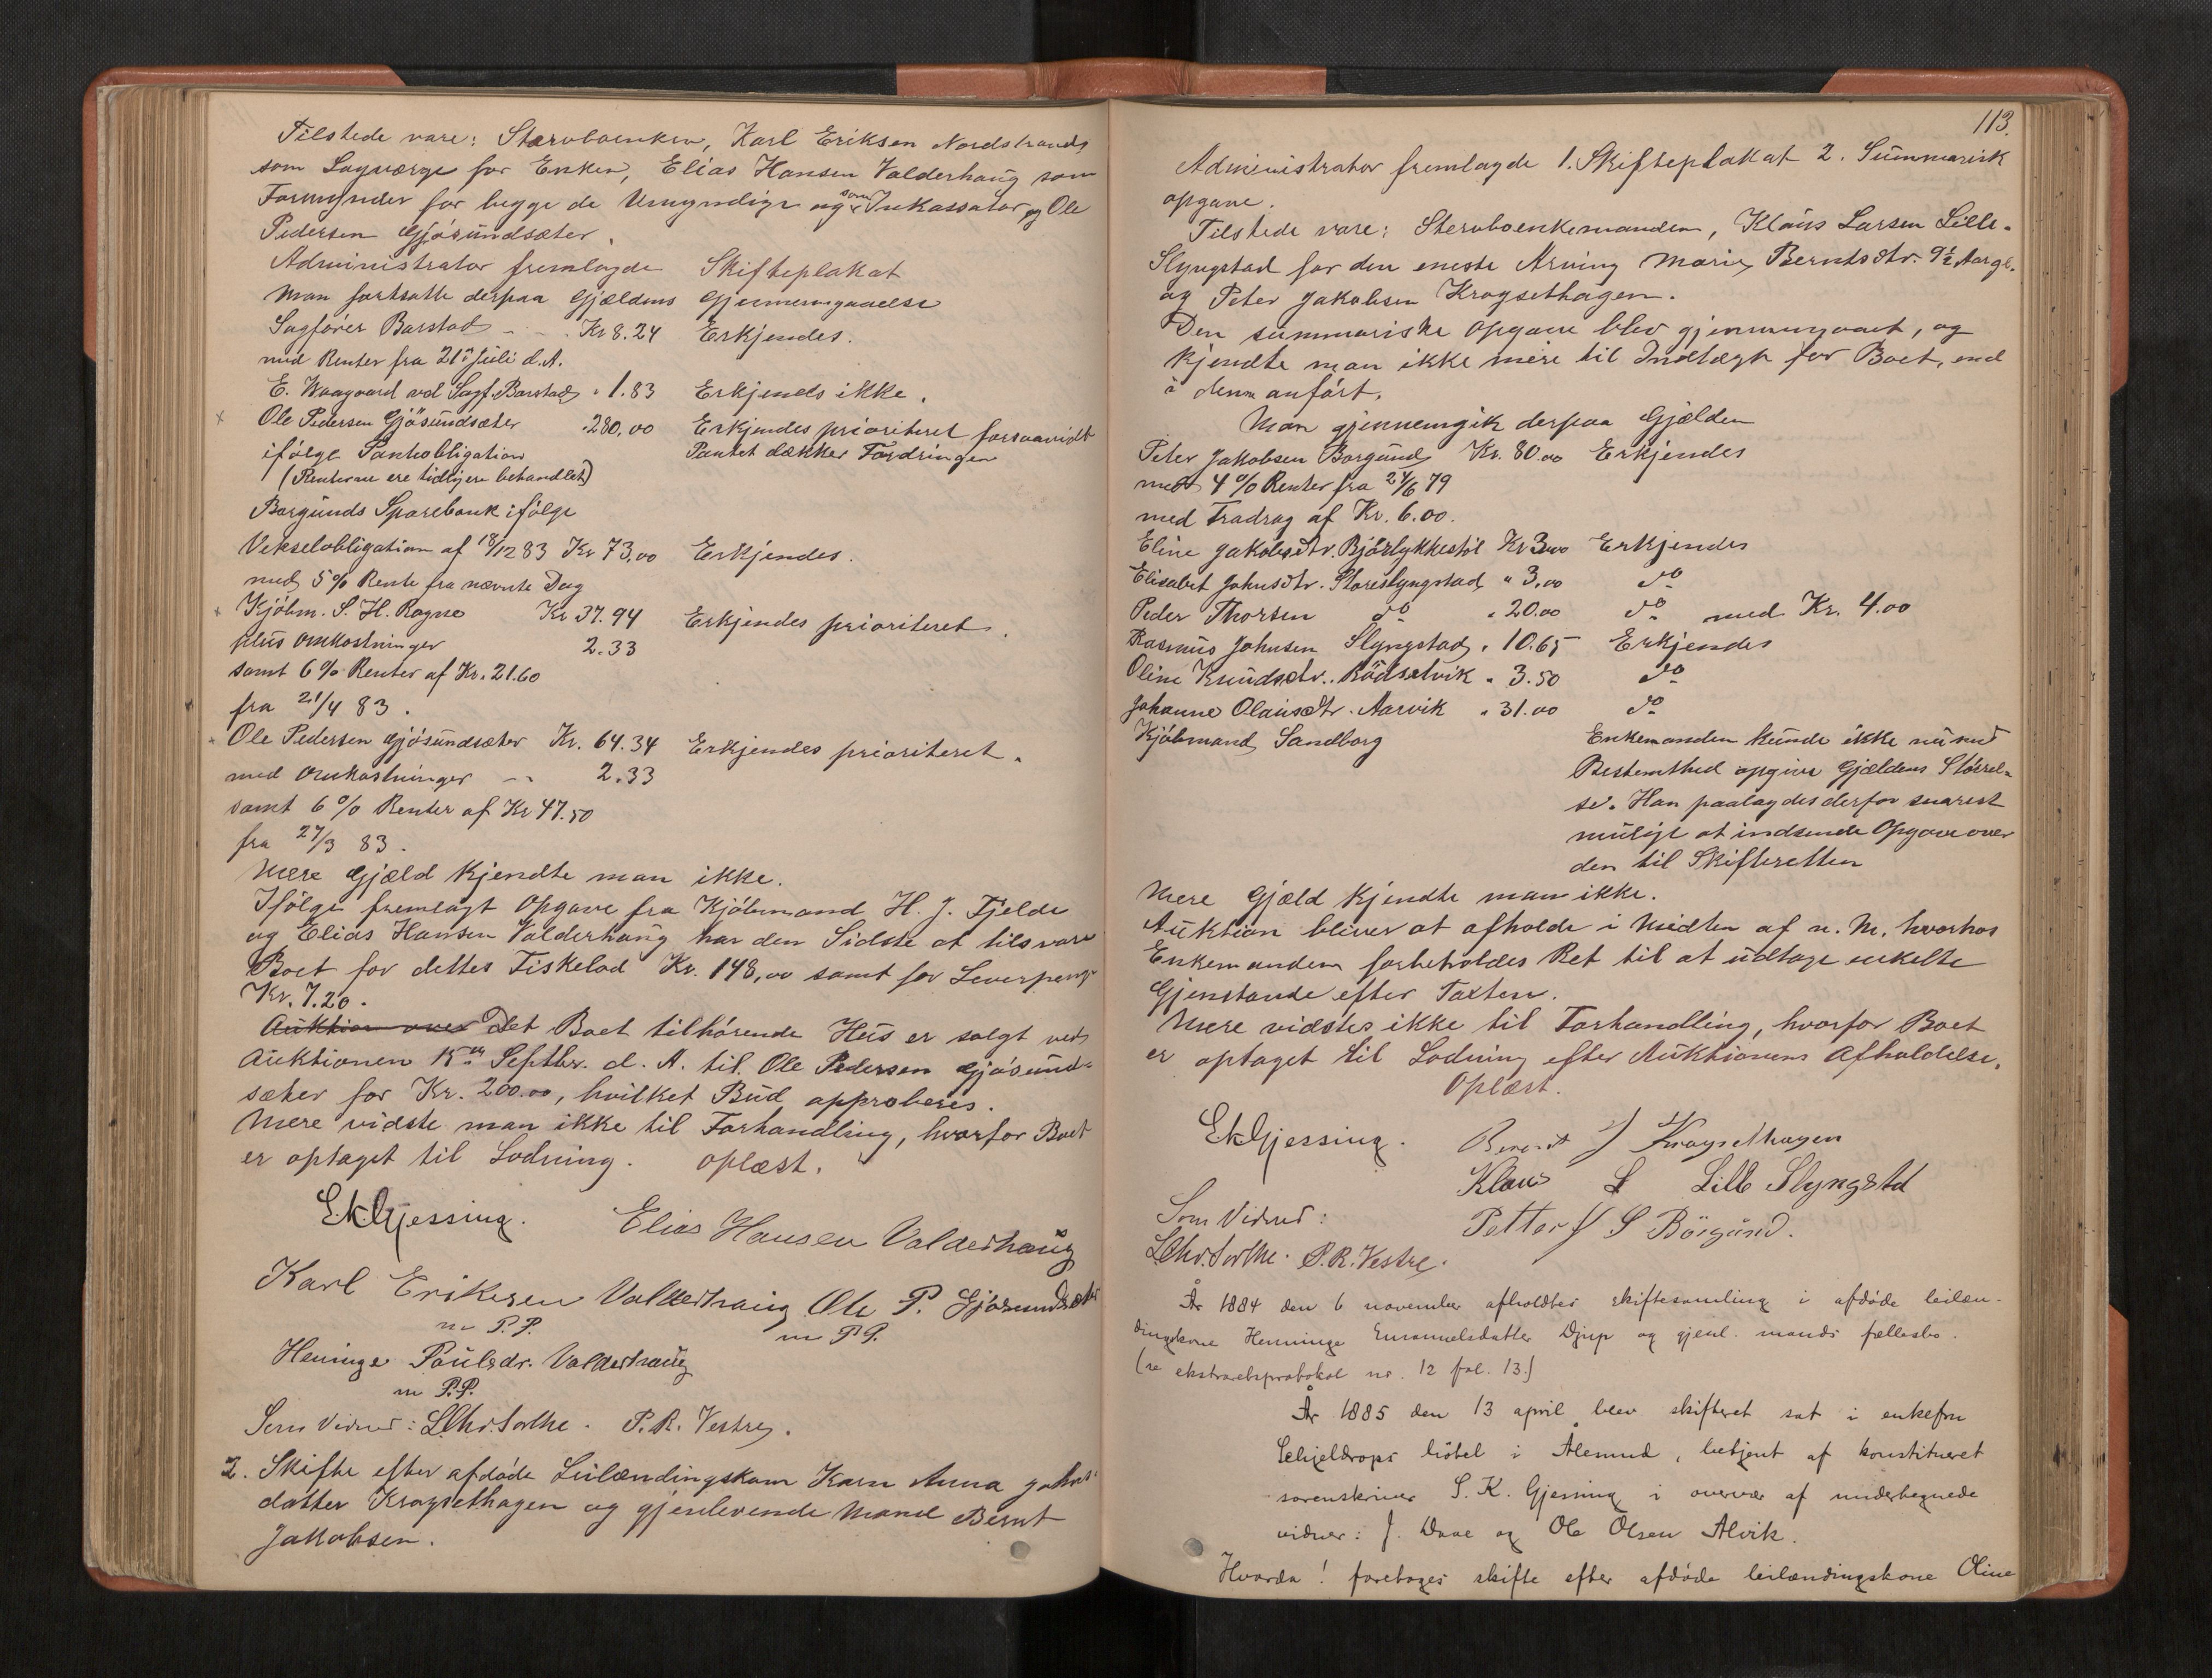 Tilstede vare: Stervboenken, Karl Eriksen Nordstrand
som Lagværge for Enken, Elias Hansen Valderhaug som
Formynder for begge de Umyndige og som Inkassator og Ole
Pedersen Gjösundsæter.
Administrator fremlagde Skifteplakat
Man fortsatte derpaa Gjældens Gjennemgaaelse
Sagförer Barstad - - Kr 8.24 Erkjendes.
med Renter fra 21de Juli d.A.
E. Waagaard ved Sagf. Barstad " 1.83 Erkjends ikke.
x Ole Pedersen Gjösundsæter " 280,00 Erkjendes prioriteret forsaavidt
ifölge Pantobligation Pantet dækker Fordringen
(Renterne ere tidligere behandlet)
Borgunds Sparebank ifölge
Vekselobligation af 18/12 83 Kr 73,00 Erkjendes.
med 5% Rente fra nævnte Dag
x Kjöbm. S. H. Rogne Kr 37.94 Erkjendes prioriteret.
plus Omkostninger 2.33
samt 6% Renter af Kr. 21.60
fra 21/4 83.
x Ole Pedersen Gjösundsæter Kr. 64.34 Erkjendes prioriteret.
med Omkostninger - - 2.33
samt 6% Renter af Kr 47.50
fra 27/3 83.
Mere Gjæld kjendte man ikke.
Ifölge fremlagt Opgave fra Kjöbmand H. J. Fjelde
og Elias Hansen Valderhaug har den Sidste at tilsvare
Boet for dettes Fiskelod Kr. 148,00 samt for Leverpenge
Kr. 7.20.
Auktion over Det Boet tilhörende Hus er solgt ved
Auktionen Septbr. d. A. til Ole Pedersen Gjösund-
sæter for Kr. 200.00, hvilket Bud approberes.
Mere vidste man ikke til Forhandling, hvorfor Boet
er optaget til Lodning. Oplæst.
EkGjessing. Elias Hansen Valderhaug
Karl Eriksen Valderhaug Ole P. Gjösundsæter
m P.P. m P.P.
Heninge Paulsdr. Valderhaug
m P.P.
Som Vidner: LChr. Sorthe. P. R. Vestre.
2. Skifte efter afdöde Leilændingskone Karn Anna Johns-
datter Krogsethagen og gjenlevende Mand Bernt
Jakobsen.
113.
Administrator fremlagde 1. Skifteplakat 2. Summarisk
opgave.
Tilstede vare: Stervboenkemanden, Klaus Larsen Lille-
Slyngstad for den eneste Arving Marie Berntsdtr. 9½ Aar gl.
og Peter Jakobsen Krogsethagen.
Den summariske Opgave blev gjennemgaaet, og
kjendte man ikke mere til Indtægt for Boet, end
i denne anfört.
Man gjennemgik derpaa Gjælden
Peter Jakobsen Borgund Kr. 80.00 Erkjendes
med 4% Renter fra 24/6 79
med Fradrag af Kr. 6.00.
Eline Jakobsdtr. Bjørlykkestöl Kr 3.00 Erkjendes
Elisabet Johnsdtr. Storeslyngstad " 3.00 do
Peder Thorsen do " 20.00 do med Kr. 4.00
Rasmus Johnsen Slyngstad " 10.65 Erkjendes
Oline Knudsdtr. Rödsetvik " 3.50 do
Johanne Olausdtr. Aarvik " 31.00 do
Kjöbmand Sandborg Enkemanden kunde ikke nu med
Bestemthed opgive Gjældens Störrel-
se. Han paalagdes derfor snarest
muligt at indsende Opgave over
den til Skifteretten
Mere Gjæld kjendte man ikke.
Auktion bliver at afholde i Midten af n. M. hvorhos
Enkemanden forbeholdes Ret til at udtage enkelte
Gjenstande efter Taxten.
Mere vidstes ikke til Forhandling, hvorfor Boet
er optaget til Lodning efter Auktionens Afholdelse.
Oplæst.
EkGjessing. Berent J Krogsethagen
Klaus L Lille Slyngstd
Som Vidner: Petter J S Börgund.
LChr. Sorthe. P. R. Vestre.
År 1884 den 6 november afholdtes skiftesamling i afdöde leilæn-
dingskone Henninge Emanuelsdatter Djup og gjenl. mands fællesbo.
(se ekstraretsprotokol nr. 12 fol. 13.)
År 1885 den 13 april blev skifteret sat i enkefru
Schjeldrops hôtel i Ålesund, betjent af konstitueret
sorenskriver S. K. Gjessing i overvær af undertegnede
vidner: J. Daae og Ole Olsen Alvik.
Hvorda! foretoges skifte efter afdöde leilændingskone Oline